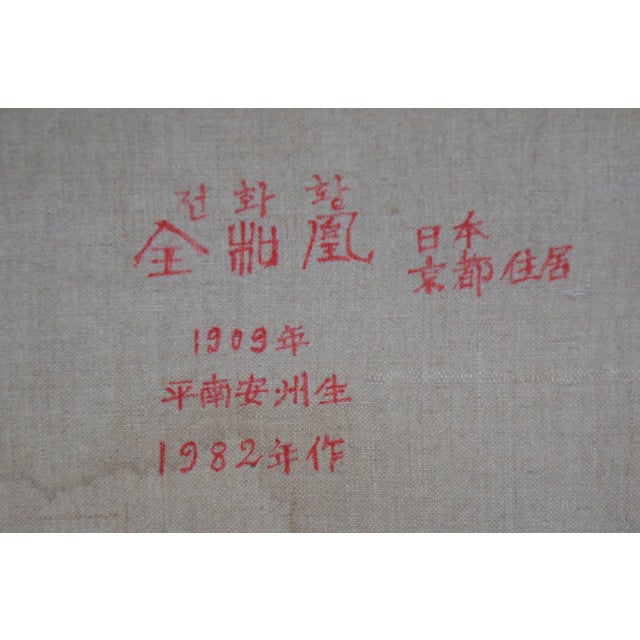 전 화 황
全和凰
日本
京都住居
1909年
平南安州生
1982年作